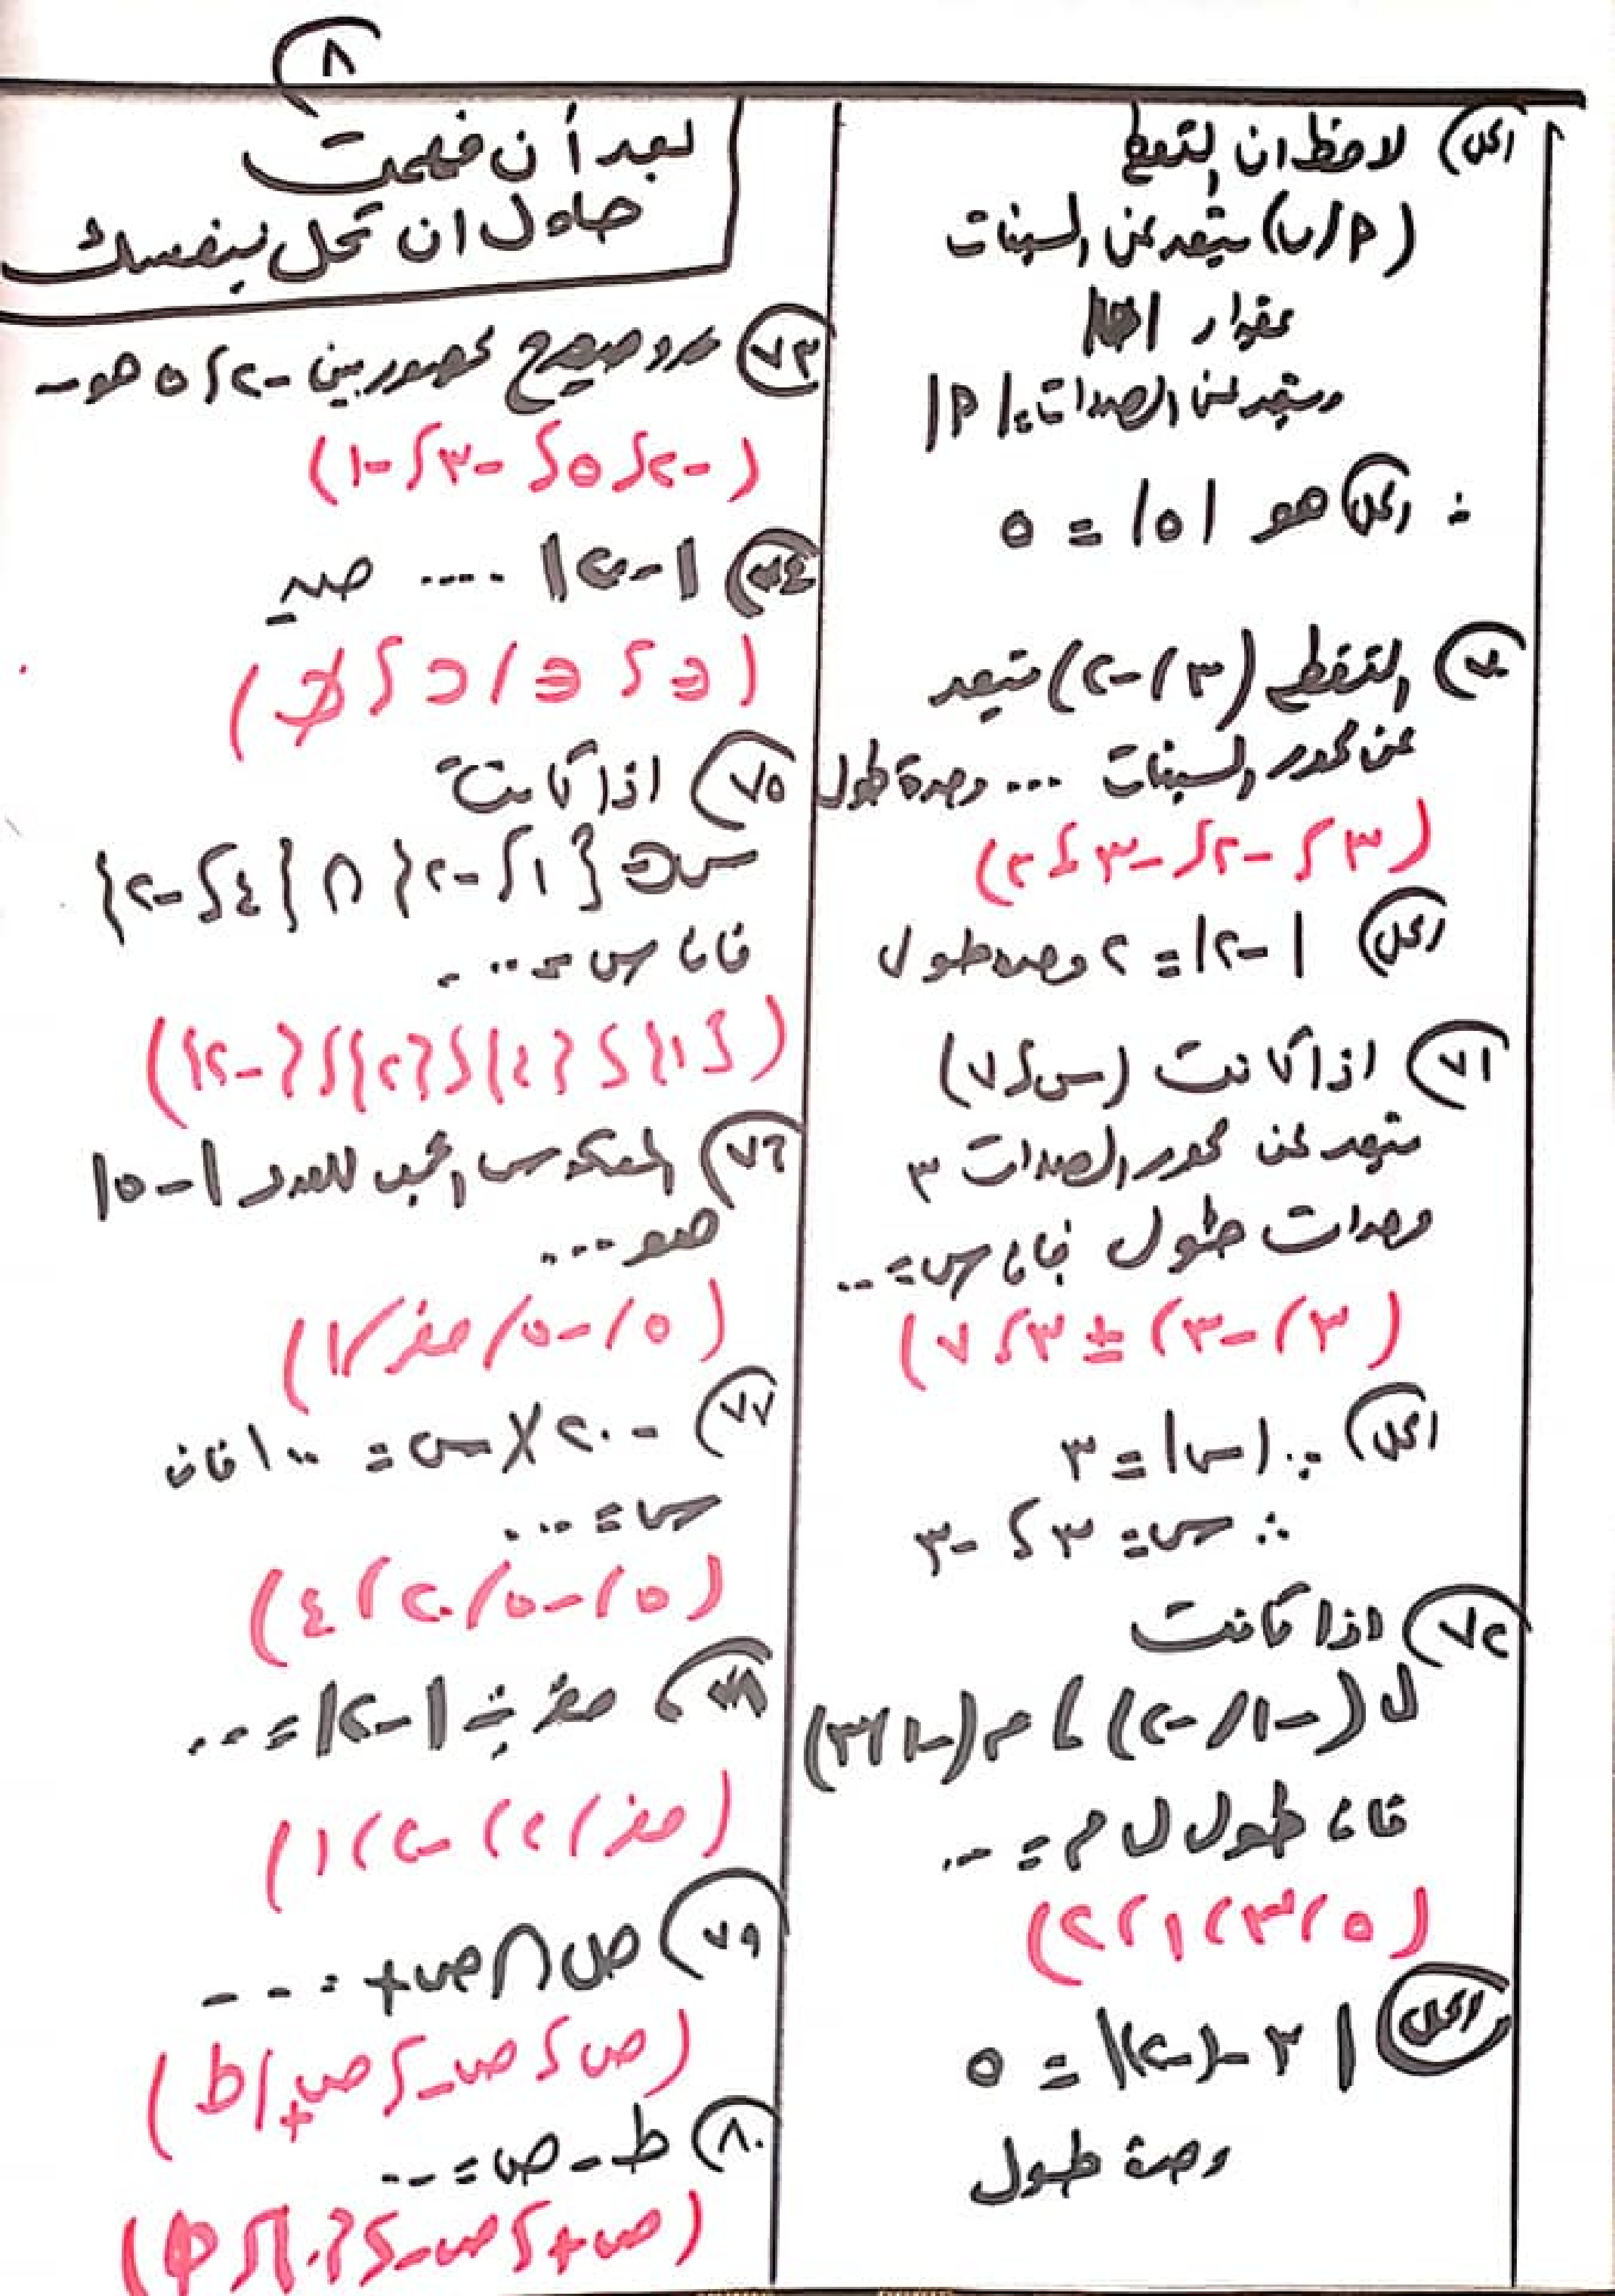 ٨
الحل) لاحظ ان النقطة
(P/ب) تبعد عن السينات
بمقدار |ب|
وتبعد عن الصادات بـ |P|
∴ الحل هو |٥| = ٥
٧٠) النقطة (٣/-٢) تبعد
عن محور السينات ... وحدة طول
(٣ ؟ -٢ ؟ -٣ ؟ ٢)
الحل) |-٢| = ٢ وحده طول
٧١) اذا كانت (س ؟ ٧)
تبعد عن محور الصادات ٣
وحدات طول فإن س = ..
(٣/ -٣/ ±٣ ؟ ٧)
الحل) ∵ |س| = ٣
∴ س = ٣ ؟ -٣
٧٢) اذا كانت
ل (-١/-٢) ، م (-١/٣)
فان طول ل م = ...
(٥/٣/١/٢)
الحل) |٣-(-٢)| = ٥
وحدة طول
بعد أن فهمت
حاول ان تحل بنفسك
٧٣) عدد صحيح محصور بين -٢ ؟ ٥ هو ...
(-٢ ؟ ٥ ؟ -٣ ؟ -١)
٧٤) |-٢| .... صـ
(∈ ؟ ∉ / ⊂ ؟ ⊄)
٧٥) اذا كانت
س ∈ {١ ؟ -٢} ∩ {٤ ؟ -٢}
فان س = ...
({١} ؟ {٤} ؟ {٢} ؟ {-٢})
٧٦) المعكوس الجمعي للعدد |-٥|
هو ...
(٥/-٥/صفر/١)
٧٧) -٢٠ × س = ١٠٠ فان
س = ...
(٥/-٥/٢٠/٤)
٧٨) صفر ÷ |-٢| = ...
(صفر/٢/-٢/١)
٧٩) ص ∩ ص+ = ...
(ص ؟ ص- ؟ ص+ / ط)
٨٠) ط - ص = ...
(ص+ ؟ ص- ؟ {٠} ؟ ∅)